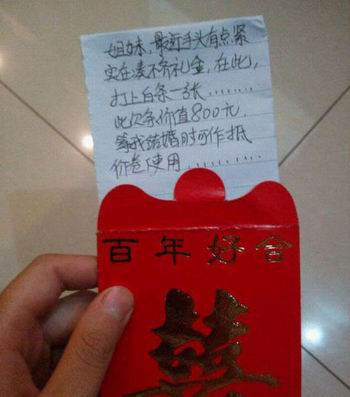 姐妹，最近手头有点紧
实在凑不齐礼金，在此，
打上白条一张........
此欠条价值800元，
等我结婚时可作抵
价卷使用........
百年好合
囍